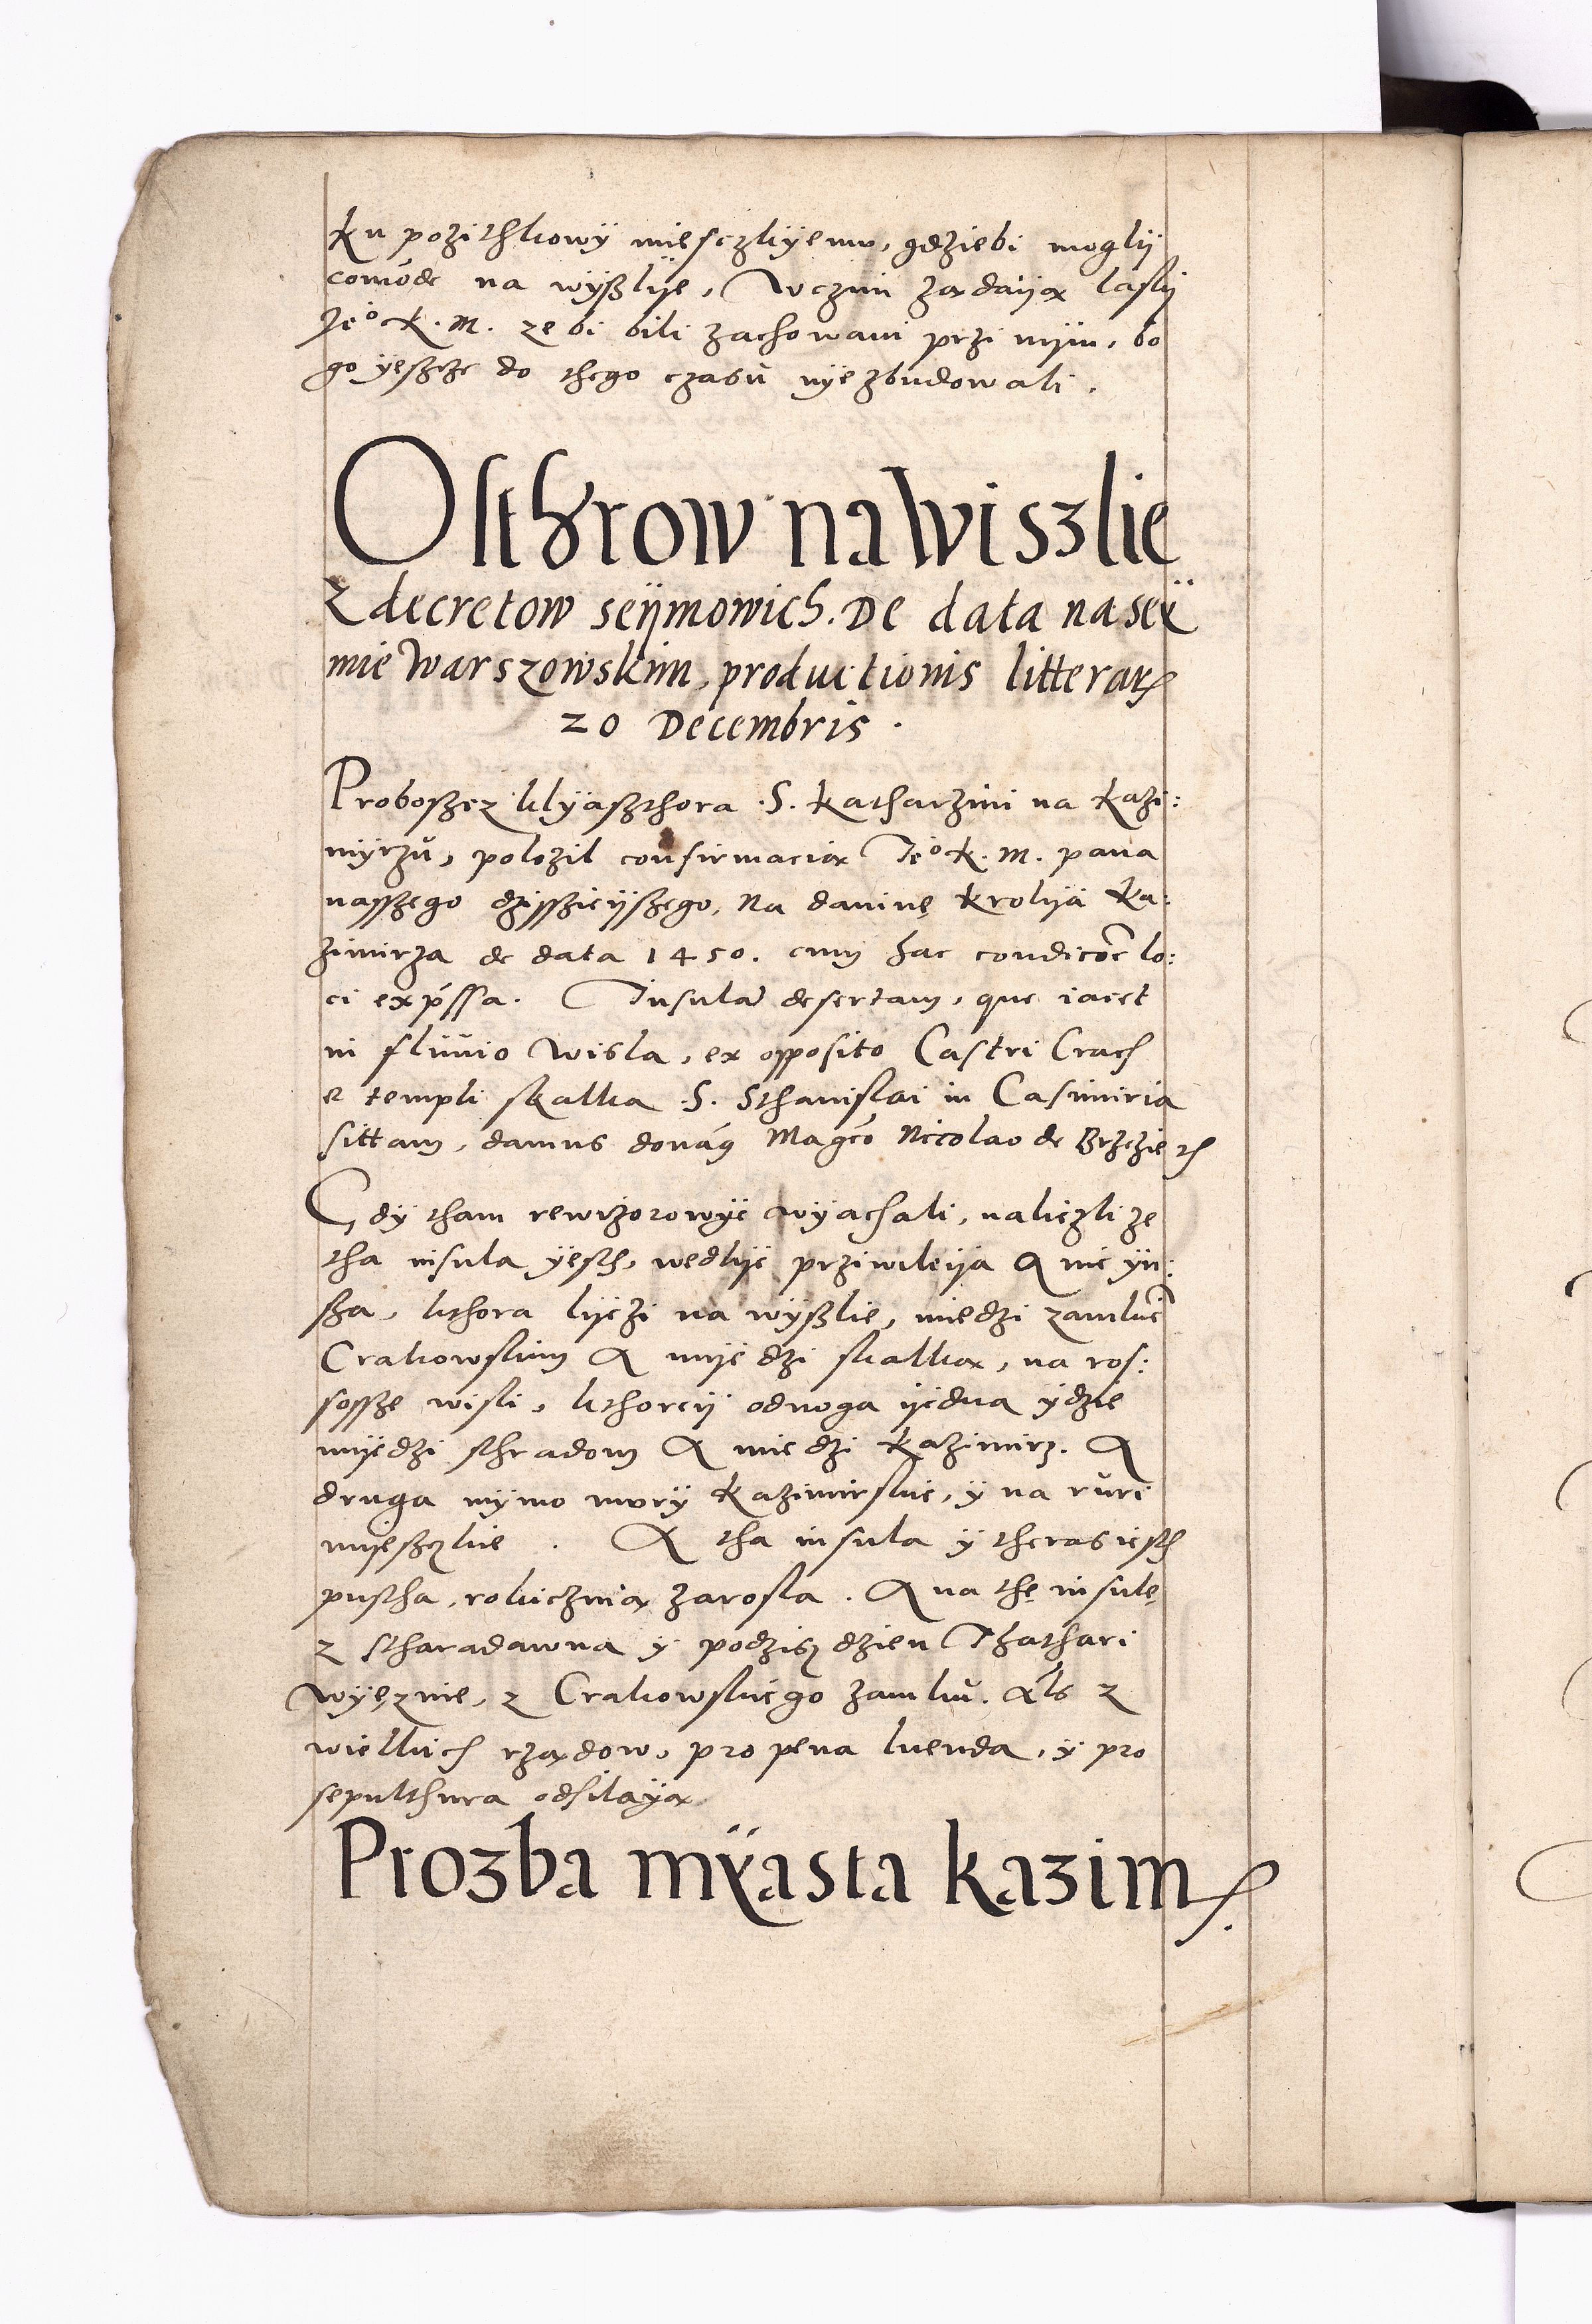 ku pozithkowÿ miesczkÿemv, gdziebi moglÿ
comode na wÿßlÿe, Wczim żądaiją laskÿ
Jeº K. M. ze bi bili zachowani przi nÿm, bo
go ÿeßcze do thego czasŭ nÿe zbudowali.
Osthrow na Wiszlie
Z decretow seÿmowich. De data na seÿ
mie Warszowskim, productionis litterarꝝ
20 Decembris.
Proboßcz klÿaßthora .S. Katharzini na Kazi:
mÿrzŭ, polozil confirmacią Jeº K. M. pana
nasszego dzisszieÿszego, Na daninę Krolÿa Ka:
zimirza de data 1450. cum hac condicõe lo:
ci exp̃ssa. Insulã desertam, que iacet
in fluuio Wisla, ex opposito Castri Crac
e templi skalka .S. Sthanislai in Casimiria
sittam, damus donaq̃ Mag̃co Nicolao de Brzezie
Gdÿ tham rewizorowÿe wÿachali, naliezli ze
tha insula ÿesth, wedlÿe prziwileija A nie ÿn:
ßa, kthora lÿezi na wÿßlie, miedzi zamkiẽ
Crakowskim A mÿedzi skalką, na ros:
sossze wisli, kthoreÿ odnoga ÿedna ÿdzie
mÿedzi sthradom A miedzi Kazimirz. A
druga mÿmo mvrÿ Kazimirskie, ÿ na rvri
mÿeßczkie. A tha insula ÿ theras iesth
pustha, rokicznią zarosla. A na thę insulę
z stharadawna ÿ podzisz dzien Thathari
wÿęznie, z Crakowskiego zamkŭ. Als z
wielkich rządow, pro pena luenda, ÿ pro
sepulthura odsilaÿą
Prozba mÿasta kazim